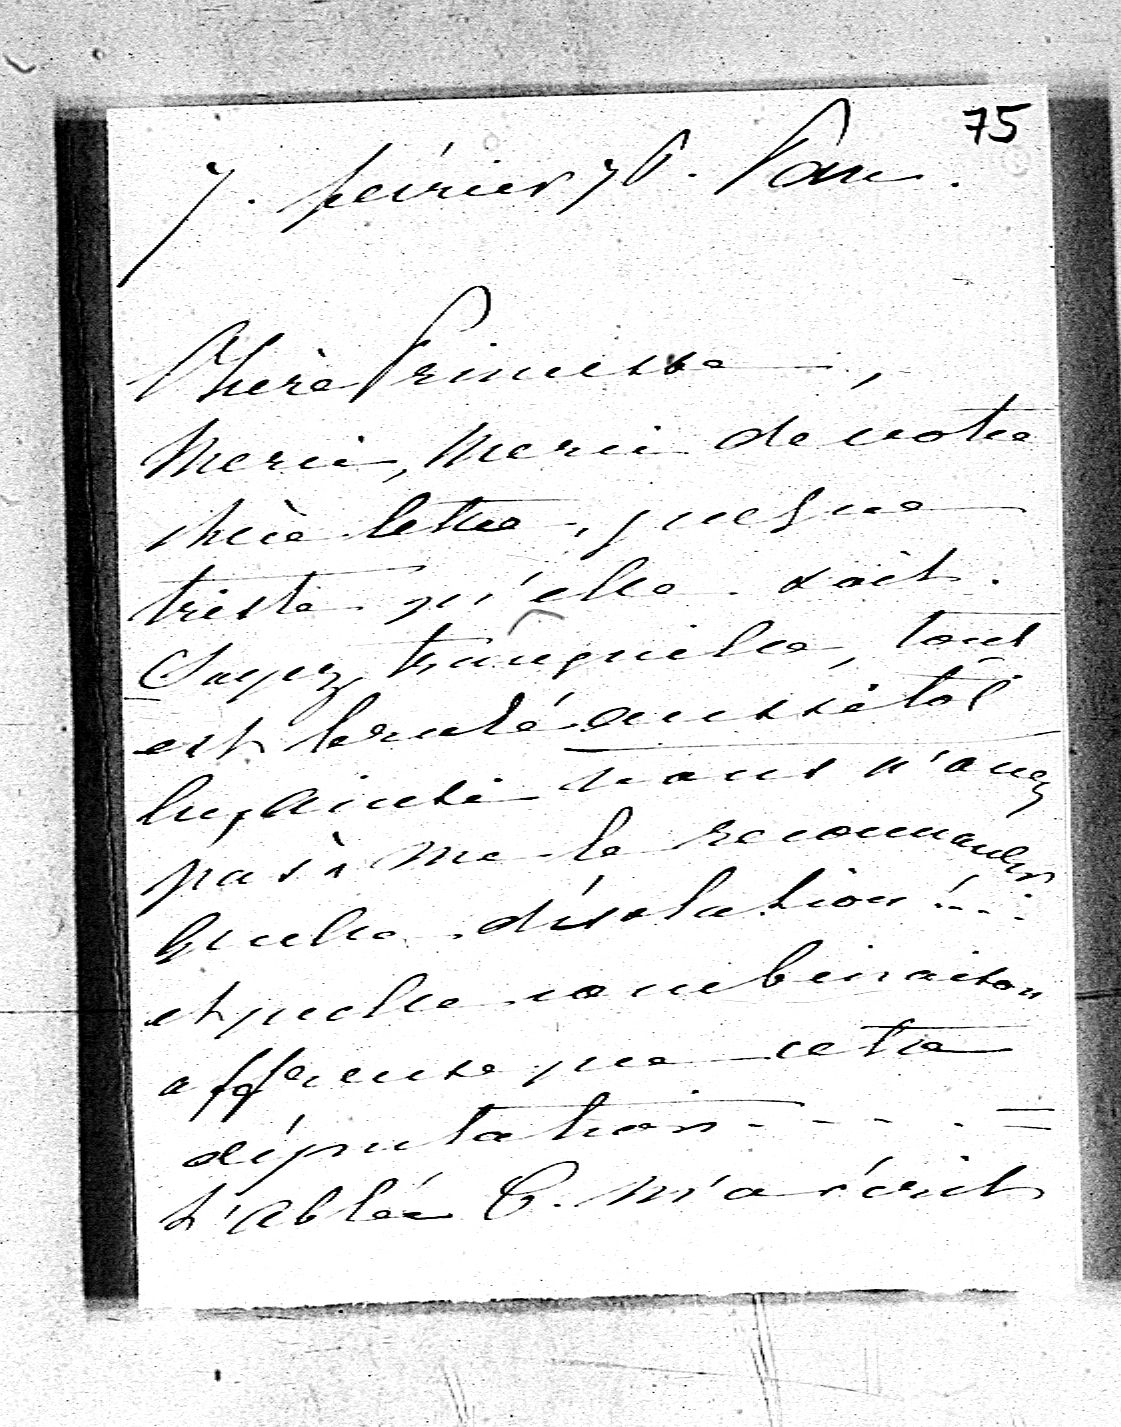 75
7. février 76. Pau.
Chère Princesse,
Merci, Merci de votre
chère lettre, quelque
triste qu'elle soit.
Soyez tranquille, tout
est brulé aussitôt
lu, ainsi vous n'avez
pas à me le recommander
Quelle désolation!...
et quelle combinaison
affreuse que cette
députation.... =
L'abbé C. m'a écrit